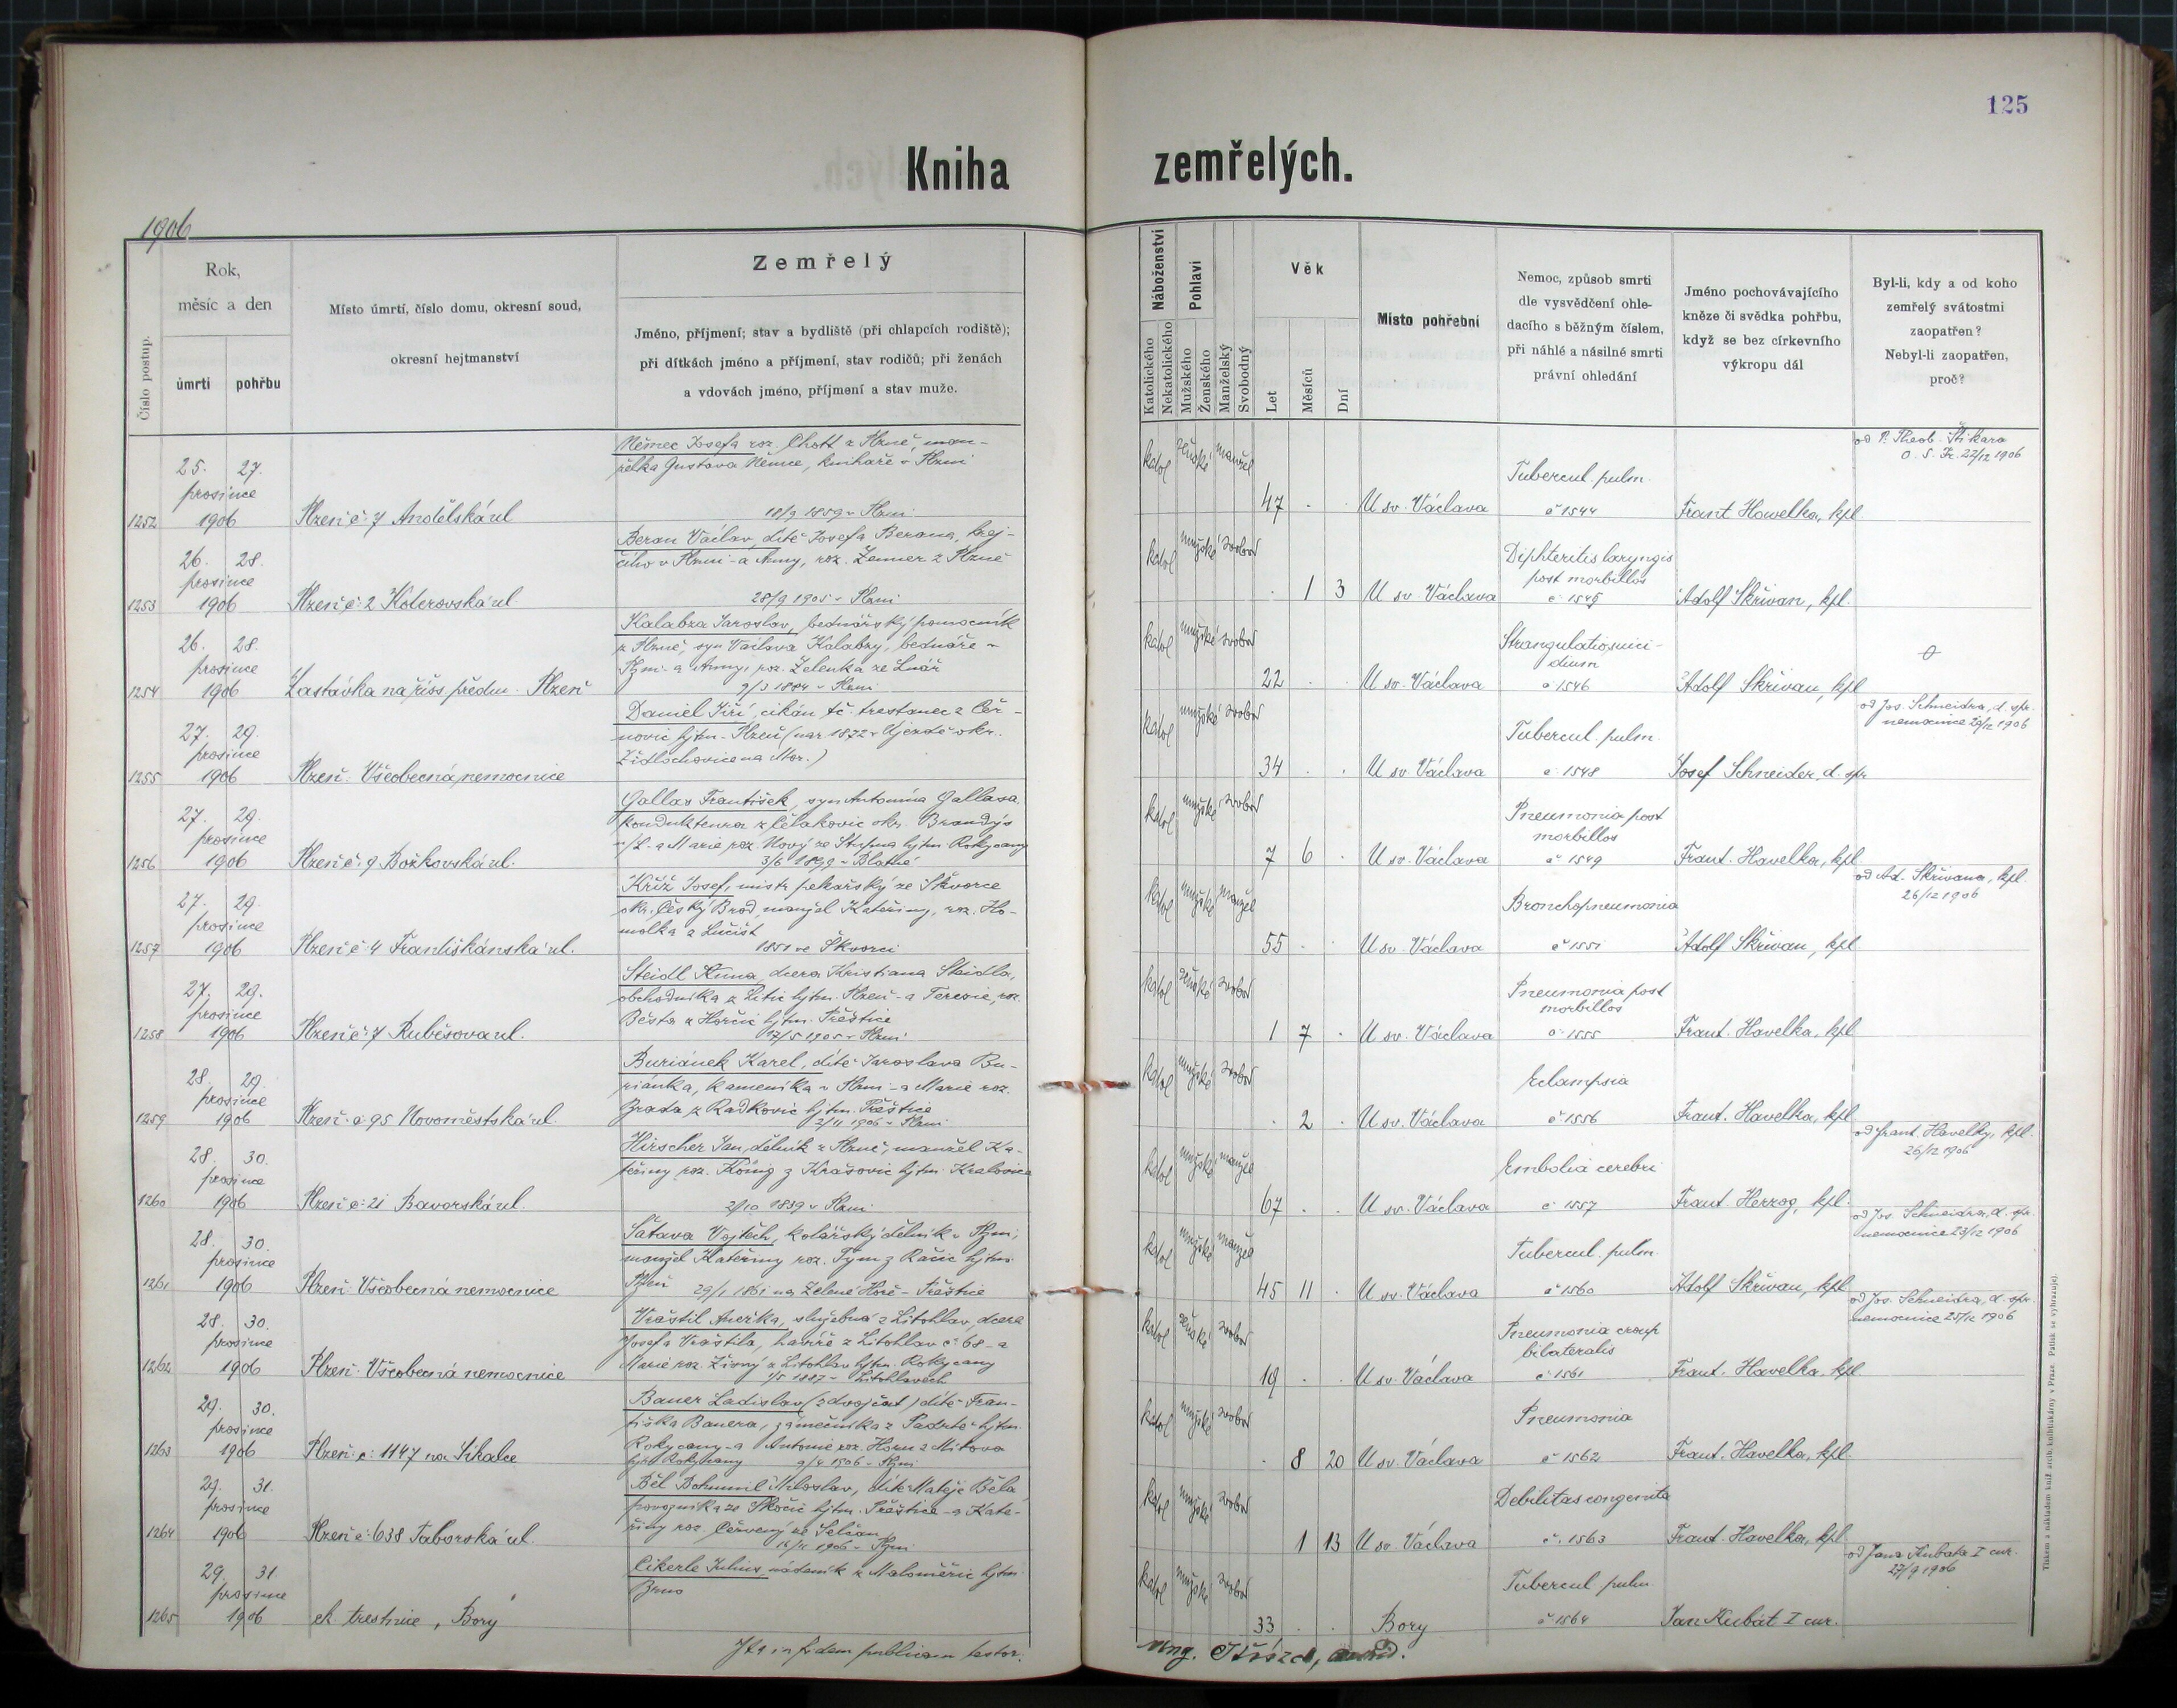 125
Kniha zemřelých.
1906
Číslo postup.
Rok,
měsíc a den
úmrtí
pohřbu
Místo úmrtí, číslo domu, okresní soud,
okresní hejtmanství
Zemřelý
Jméno, příjmení; stav a bydliště (při chlapcích rodiště);
při dítkách jméno a příjmení, stav rodičů; při ženách
a vdovách jméno, příjmení a stav muže.
Náboženství
Katolického
Nekatolického
Pohlaví
Mužského
Ženského
Manželský
Svobodný
Věk
Let
Měsíců
Dní
Místo pohřební
Nemoc, způsob smrti
dle vysvědčení ohle-
dacího s běžným číslem,
při náhlé a násilné smrti
právní ohledání
Jméno pochovávajícího
kněze či svědka pohřbu,
když se bez církevního
výkropu dál
Byl-li, kdy a od koho
zemřelý svátostmi
zaopatřen?
Nebyl-li zaopatřen,
proč?
1252
25. 27.
prosince
1906
Plzeň č: 7 Andělská ul
Němec Josefa roz. Chott z Plzně, man-
želka Gustava Němce, knihaře v Plzni
18/9 1859 v Plzni
katol ženské manžel
47 . .
U sv. Václava
Tubercul. pulm.
č 1544
Frant Havelka, kpl
od P. Theob. Štikara
O. S. Fr. 22/12 1906
1253
26. 28.
prosince
1906
Plzeň č: 2 Koterovská ul
Beran Václav, dítě Josefa Berana, krej-
čího v Plzni - a Anny, roz. Zenner z Plzně
28/9 1905 v Plzni
katol mužské svobod
. 1 3
U sv. Václava
Diphteritis laryngis
post morbillos
č 1545
Adolf Skřivan, kpl.
1254
26. 28.
prosince
1906
Zastávka na říšs předm. Plzeň
Kalabza Jaroslav, bednářský pomocník
z Plzně, syn Václava Kalabzy, bednáře v
Plzni a Anny, roz. Zelenka ze Lnář
9/3 1884 v Plzni
katol mužské svobod
22 . .
U sv. Václava
Strangulatio suici-
dium
č 1546
Adolf Skřivan, kpl
0
1255
27. 29.
prosince
1906
Plzeň: Všeobecná nemocnice
Daniel Jiří, cikán tč. trestanec z Čer-
novic hjtm. Plzeň (nar 1872 v Újezdě okr.
Židlochovice na Mor.)
katol mužské svobod
34 . .
U sv. Václava
Tubercul. pulm.
č 1548
Josef Schneider, d. spr
od Jos. Schneidra, d. spr.
nemocnice 1906
1256
27. 29.
prosince
1906
Plzeň č: 9 Božkovská ul.
Gallas František, syn Antonína Gallasa
konduktéura z Čelakovic okr. Brandýs
n/L. a Marie roz. Nový ze Stupna hjtm. Rokycany
3/6 1899 v Blatné
katol mužské svobod
7 6 .
U sv. Václava
Pneumonia post
morbillos
č 1549
Frant. Havelka, kpl
1257
27. 29.
prosince
1906
Plzeň č: 4 Františkánská ul.
Kříž Josef, mistr pekařský ze Škvorce
okr. Český Brod, manžel Kateřiny, roz. Ho-
molka z Lučišt
1851 ve Škvorci
katol mužské manžel
55 . .
U sv. Václava
Bronchopneumonia
č 1551
Adolf Skřivan, kpl
od Ad. Skřivana, kpl.
26/12 1906
1258
27. 29.
prosince
1906
Plzeň č: 7 Rubešova ul.
Steidl Anna, dcera Kristiana Steidla,
obchodníka z Litic hjtm. Plzeň - a Terezie, roz.
Běsta z Horčic hjtm. Přeštice
17/5 1905 v Plzni
katol ženské svobod
1 7 .
U sv. Václava
Pneumonia post
morbillos
č 1555
Frant. Havelka, kpl
1259
28. 29.
prosince
1906
Plzeň č: 95 Novoměstská ul.
Buriánek Karel, dítě Jaroslava Bu-
riánka, kameníka v Plzni - a Marie roz.
Brada z Radkovic hjtm. Přeštice
2/11 1906 v Plzni
katol mužské svobod
. 2 .
U sv. Václava
Eclampsia
č 1556
Frant. Havelka, kpl
1260
28. 30.
prosince
1906
Plzeň č: 21 Bavorská ul.
Hirscher Jan, dělník z Plzně, manžel Ka-
teřiny roz. König z Krašovic hjtm. Kralovice
2/10 1839 v Plzni
katol mužské manžel
67 . .
U sv. Václava
Embolia cerebri
č 1557
Frant. Herzog, kpl.
od Frant. Havelky, kpl.
26/12 1906
1261
28. 30.
prosince
1906
Plzeň: Všeobecná nemocnice
Šatava Vojtěch, kolářský dělník v Plzni,
manžel Kateřiny roz. Tým z Račic hjtm.
Plzeň 29/1 1861 na Zelené Hoře - Přeštice
katol mužské manžel
45 11 .
U sv. Václava
Tubercul. pulm.
č 1560
Adolf Skřivan, kpl
od Jos. Schneidra, d. spr.
nemocnice 23/12 1906
1262
28. 30.
prosince
1906
Plzeň: Všeobecná nemocnice
Vraštil Anežka, služebná z Litohlav, dcera
Josefa Vraštila, havíře z Litohlav č: 68 - a
Marie roz. Živný z Litohlav hjtm. Rokycany
1/5 1887 v Litohlavech
katol ženské svobod
19 . .
U sv. Václava
Pneumonia croup
bilateralis
č 1561
Frant. Havelka, kpl.
od Jos. Schneidra, d. spr.
nemocnice 25/12 1906
1263
29. 30.
prosince
1906
Plzeň: č: 1147 na Jikalce
Bauer Ladislav (z dvojčat) dítě Fran-
tiška Bauera, zámečníka z Padrtě hjtm.
Rokycany - a Antonie roz. Horn z Mitova
hjtm Rokycany 9/4 1906 v Plzni
katol mužské svobod
. 8 20
U sv. Václava
Pneumonia
č 1562
Frant. Havelka, kpl.
1264
29. 31.
prosince
1906
Plzeň č: 638 Táborská ul.
Běl Bohumil Miloslav, dítě Matěje Běla
povozníka ze Skočic hjtm. Přeštice - a Kate-
řiny roz. Červený ze Selčan
16/11 1906 v Plzni
katol mužské svobod
1 13
U sv. Václava
Debilitas congenita
č. 1563
Frant. Havelka, kpl
1265
29. 31.
prosince
1906
ck trestnice, Bory
Cikerle Julius, nádeník z Maloměřic hjtm.
Brno
katol mužské svobod
33 . .
Bory
Tubercul pulm.
č 1564
Jan Kubát I cur.
od Jana Kubáta I cur.
27/9 1906
Ita in fidem publicam testor.